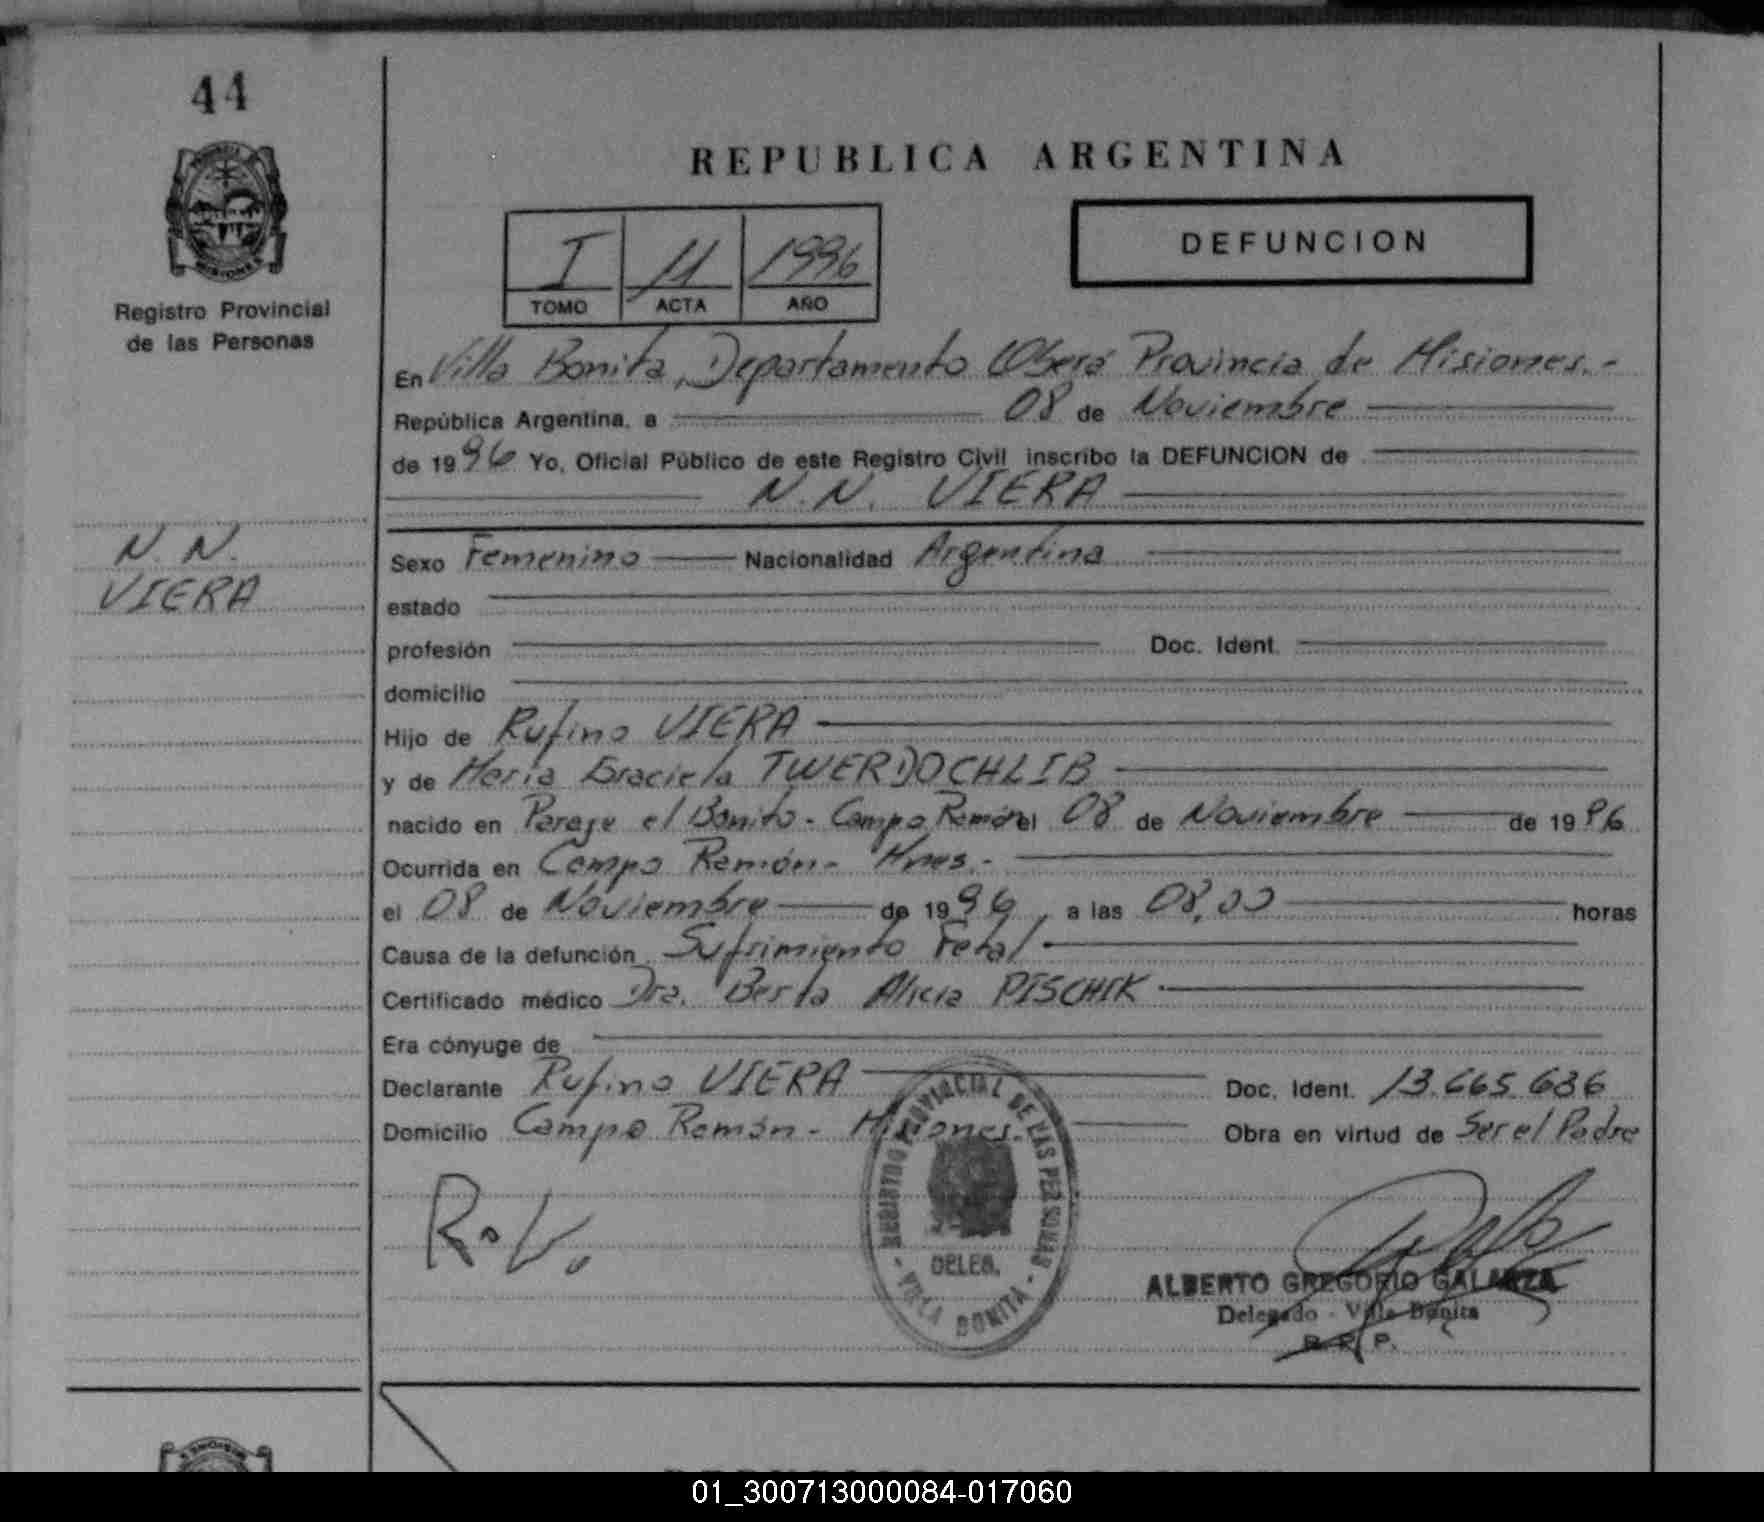 44
MISIONES
Registro Provincial
de las Personas
REPUBLICA ARGENTINA
I 11 1996
TOMO ACTA AÑO
DEFUNCION
En Villa Bonita, Departamento Oberá Provincia de Misiones.-
República Argentina, a 08 de Noviembre
de 1996 Yo, Oficial Público de este Registro Civil inscribo la DEFUNCION de
N.N. VIERA
N.N.
VIERA
Sexo Femenino Nacionalidad Argentina
estado
profesión Doc. Ident.
domicilio
Hijo de Rufino VIERA
y de María Graciela TWERDOCHLIB
nacido en Paraje el Bonito - Campo Ramón el 08 de Noviembre de 1996
Ocurrida en Campo Ramón - Mnes.-
el 08 de Noviembre de 1996, a las 08,00 horas
Causa de la defunción Sufrimiento Fetal
Certificado médico Dra. Berta Alicia PISCHIK
Era cónyuge de
Declarante Rufino VIERA Doc. Ident. 13.665.636
Domicilio Campo Ramón - Misiones.- Obra en virtud de Ser el Padre
R.V.
- REGISTRO PROVINCIAL DE LAS PERSONAS -
DELEG.
VILLA BONITA
ALBERTO GREGORIO GALARZA
Delegado - Villa Bonita
R. P. P.
01_300713000084-017060